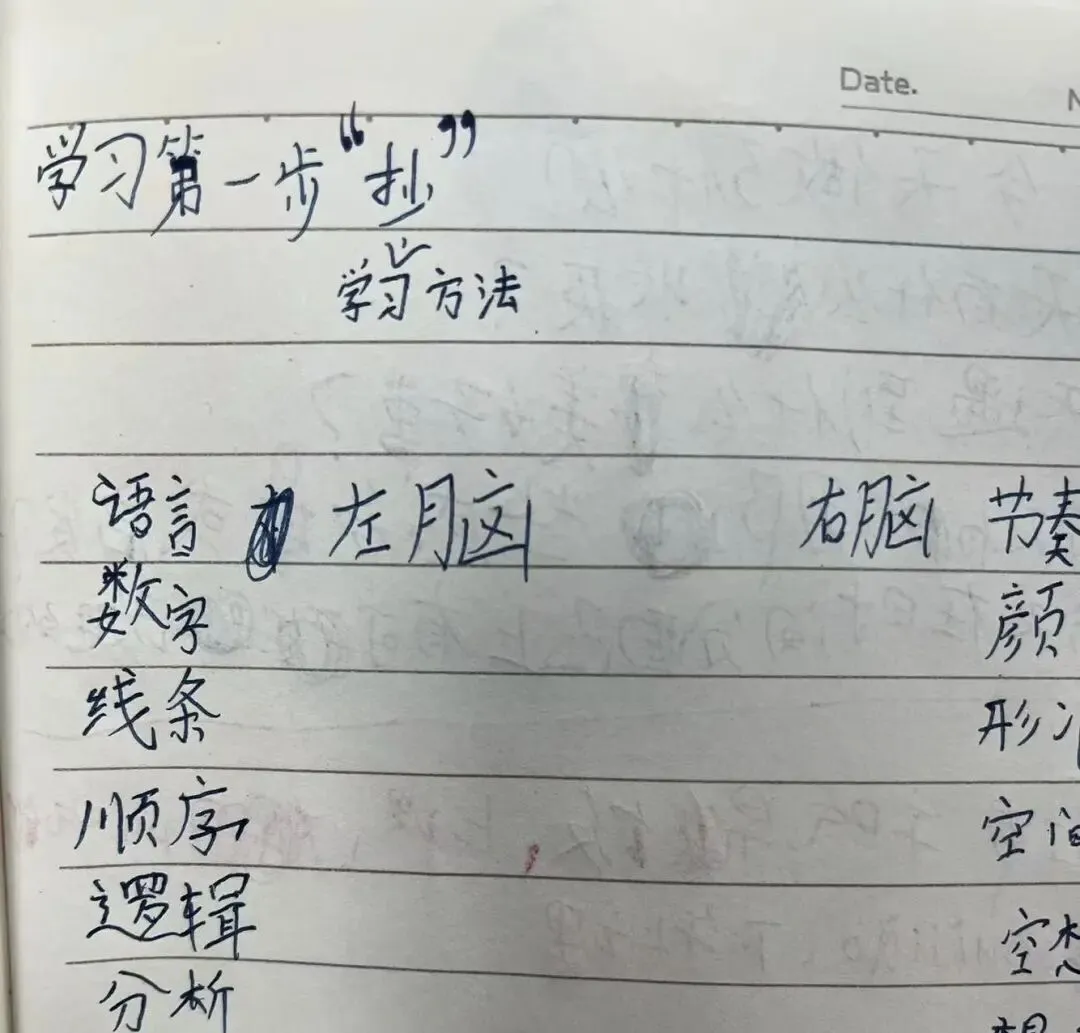 Date.
学习第一步“抄”
学习方法
语言 左脑 右脑 节奏
数字 颜
线条 形
顺序 空间
逻辑 空想
分析